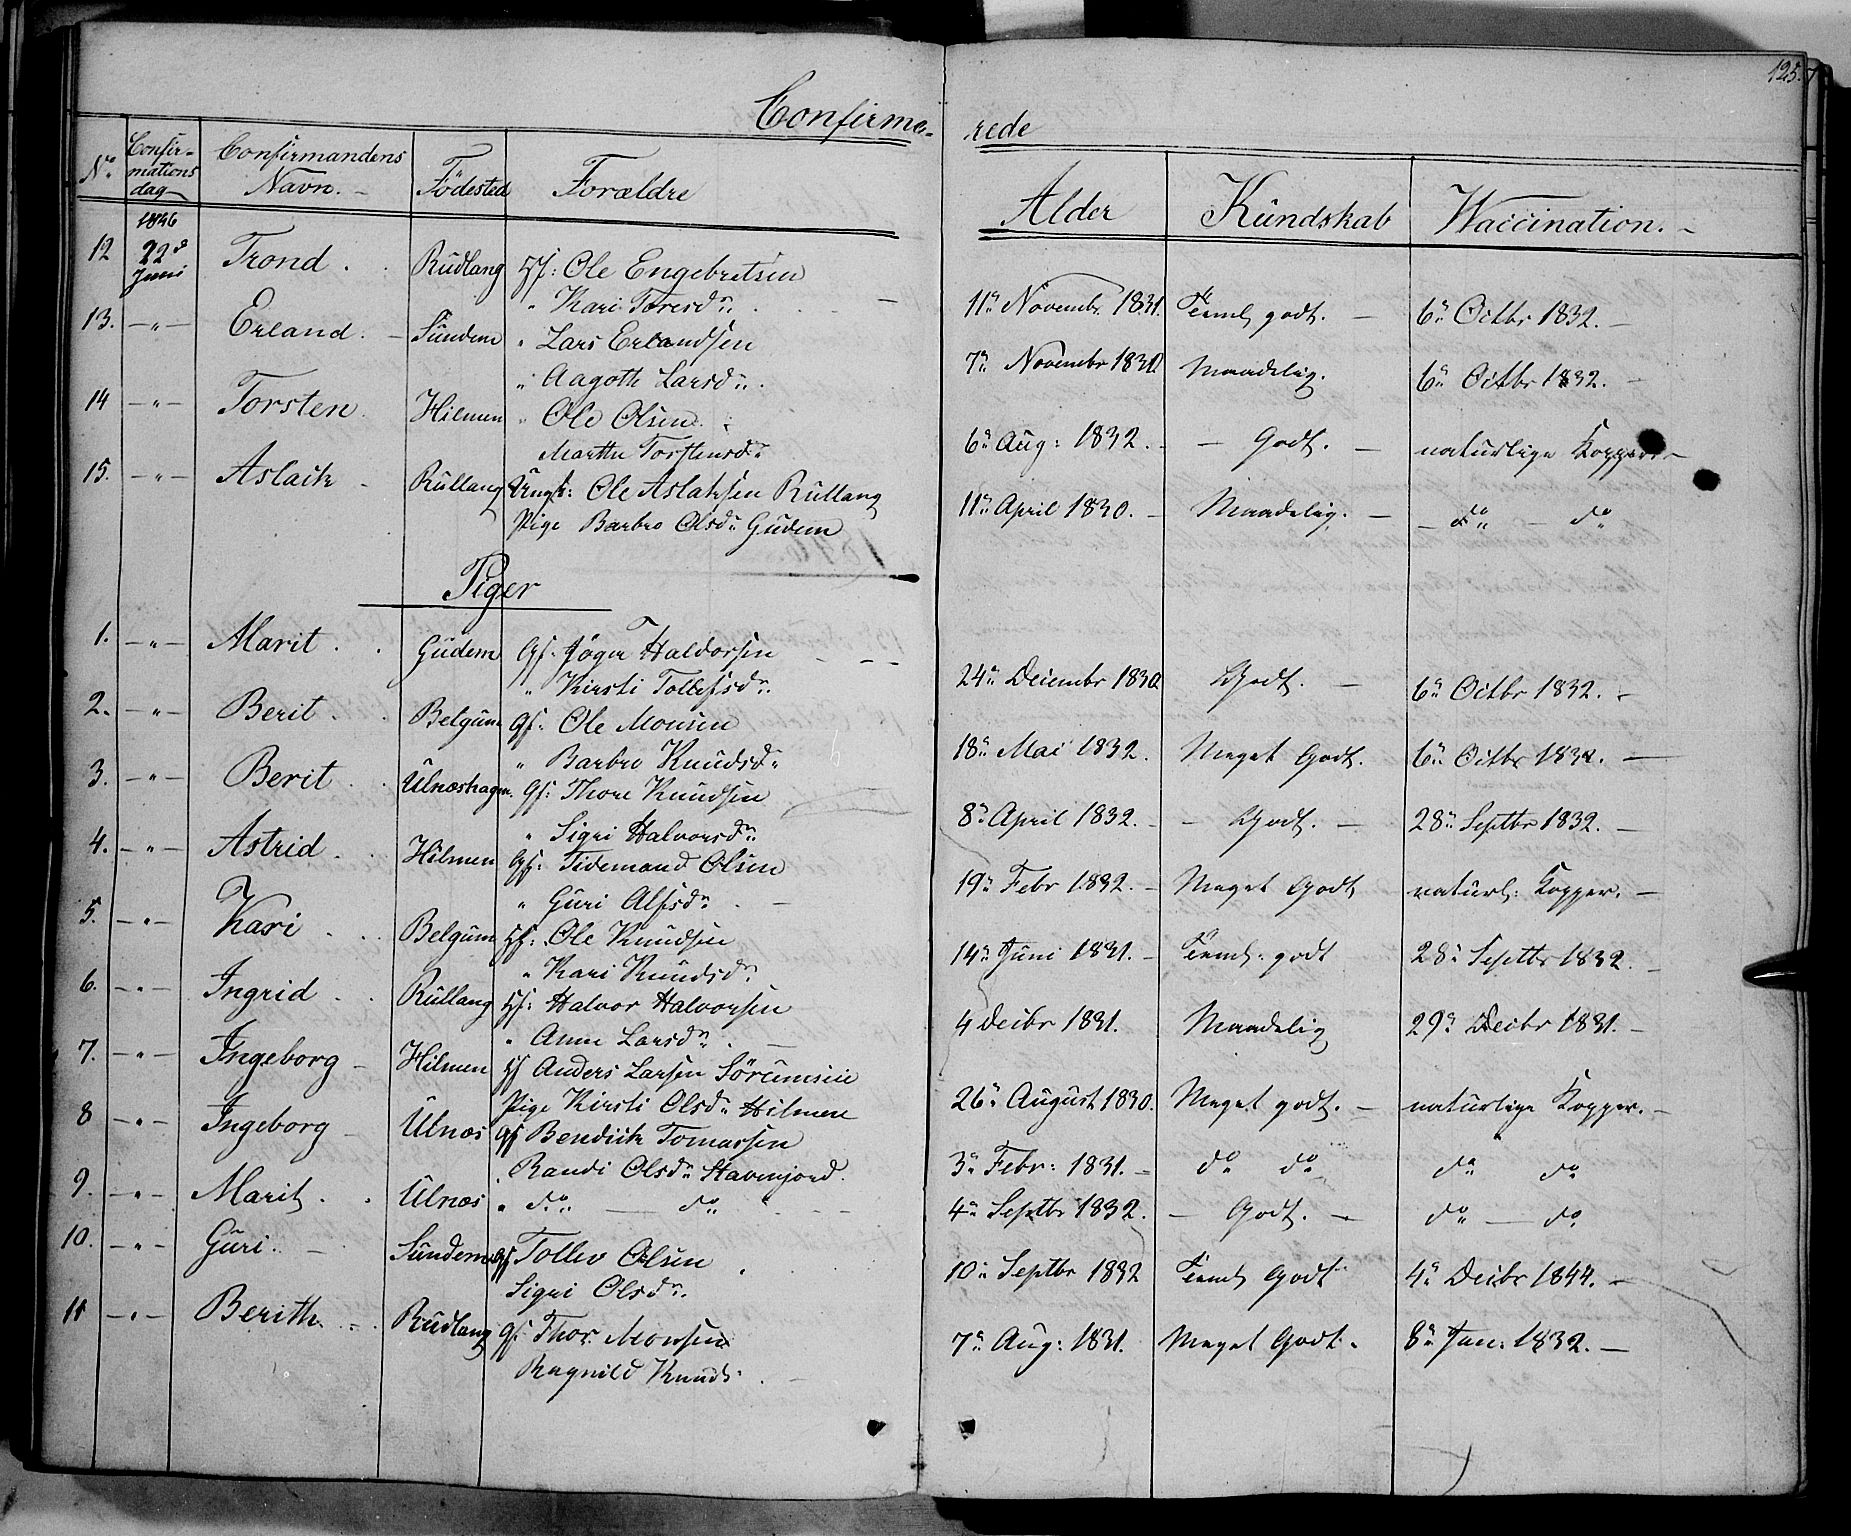 125.
Confirme- rede
No Confir-mations dag Confirmandens Navn. Födested Forældre Alder Kundskab Waccination.
1846
12 22de Juni Trond. Rudlang Hf: Ole Engebretsen
" Kari Toresdr. 11te Novembr 1831. Teml. godt. 6te Octbr 1832.
13. -"- Erland. Sundem " Lars Erlandsen
" Aagoth Larsdr. 7de Novembr 1830 Maadelig. 6te Octbr 1832.
14 -"- Torsten. Hilmen " Ole Olsen.
Marthe Torstensdr. 6te Aug: 1832. Godt. naturlige Kopper.
15. -"- Aslach Rullang Ungk: Ole Aslaksen Rullang
Pige Barbro Olsdr. Gudem 11te April 1830. Maadelig. do do
Piger
1. -"- Marit. Gudem Gf. Jöger Haldorsen
" Kirsti Tollefsdr. 24de Decembr 1830 Godt. 6te Octbr 1832.
2. -"- Berit. Belgum Gf. Ole Monsen
" Barbro Knudsdr. 18de Mai 1832. Meget Godt. 6te Octbr 1832.
3. -"- Berit Ulnæshagen. Gf: Thore Knudsen
" Sigri Halvorsdr. 8de April 1832. Godt. 28de Septbr 1832.
4. -"- Astrid. Hilmen Gf: Tidemand Olsen
" Guri Alfsdr. 19de Febr 1832. Meget Godt naturl: Kopper.
5. -"- Kari. Belgum Hf: Ole Knudsen
" Kari Knudsdr. 14de Juni 1831. Teml. godt 28de Septbr 1832.
6. -"- Ingrid. Rullang Hf: Halvor Halvorsen
" Anne Larsdr. 4 Decbr 1831. Maadelig 29de Decbr 1831.
7. -"- Ingeborg Hilmen Hf Anders Larsen Sörumseie
Pige Kirsti Olsdr. Hilmen 26de August 1830. Meget godt. naturlige Kopper.
8 -"- Ingeborg Ulnæs Gf Bendich Tomassen
" Randi Olsdr. Stavenjord. 3de Febr: 1831. do do do do
9. -"- Marit. Ulnæs " do do 4de Septbr 1832. Godt. do do
10. -"- Guri. Sundem Gf Tollev Olsen
Sigri Olsdr. 10de Septbr 1832 Teml. Godt 4de Decbr 1844.
11 -"- Berith. Rudlang Gf. Thor Monsen
Ragnild Knuds. 7de Aug: 1831. Meget Godt. 8de Jan: 1832.